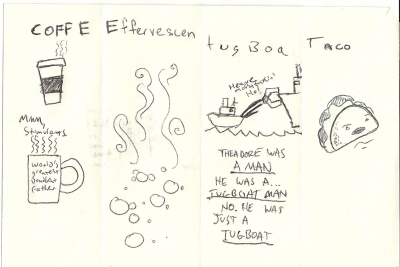 COFFE
Effervescen
tugBoa
TACO
Mmm,
Stimulants
World's
greatest
father
Heave
Ho!
THEADORE WAS
A MAN
HE WAS A...
TUGBOAT MAN
NO. HE WAS
JUST A
TUGBOAT